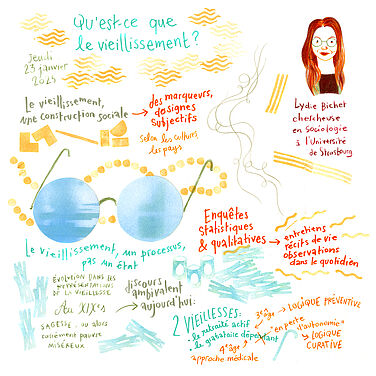 Qu'est-ce que
le vieillissement?
Jeudi
23 janvier
2025
Le vieillissement,
une construction sociale
des marqueurs,
des signes
subjectifs
Selon les cultures,
les pays
Lydie Bichet
chercheuse
en sociologie
à l'Université
de Strasbourg
Enquêtes
statistiques
& qualitatives
entretiens
récits de vie
observations
dans le quotidien
Le vieillissement, un processus,
pas un état
ÉVOLUTION DANS LES
REPRÉSENTATIONS
DE LA VIEILLESSE
Au XIXe
SAGESSE ou alors
extrêmement pauvre
MISÉREUX
discours
ambivalent
aujourd'hui:
2 VIEILLESSES:
• le retraité actif
• le grabataire dépendant
3e âge
LOGIQUE PRÉVENTIVE
4e âge
approche médicale
"en perte
d'autonomie"
LOGIQUE
CURATIVE